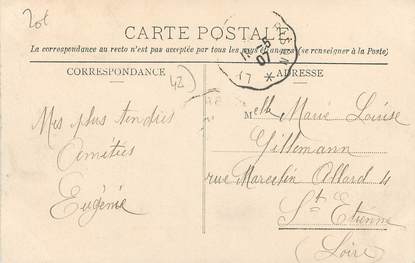 20t
CARTE POSTALE
La correspondance au recto n'est pas acceptée par tous les pays étrangers (se renseigner à la Poste)
CORRESPONDANCE
42
ADRESSE
07
LY
Mes plus tendres
Amitiés
Eugénie
Melle Marie Louise
Gillemann
rue Marcelin Allard 4
St Etienne
(Loire)